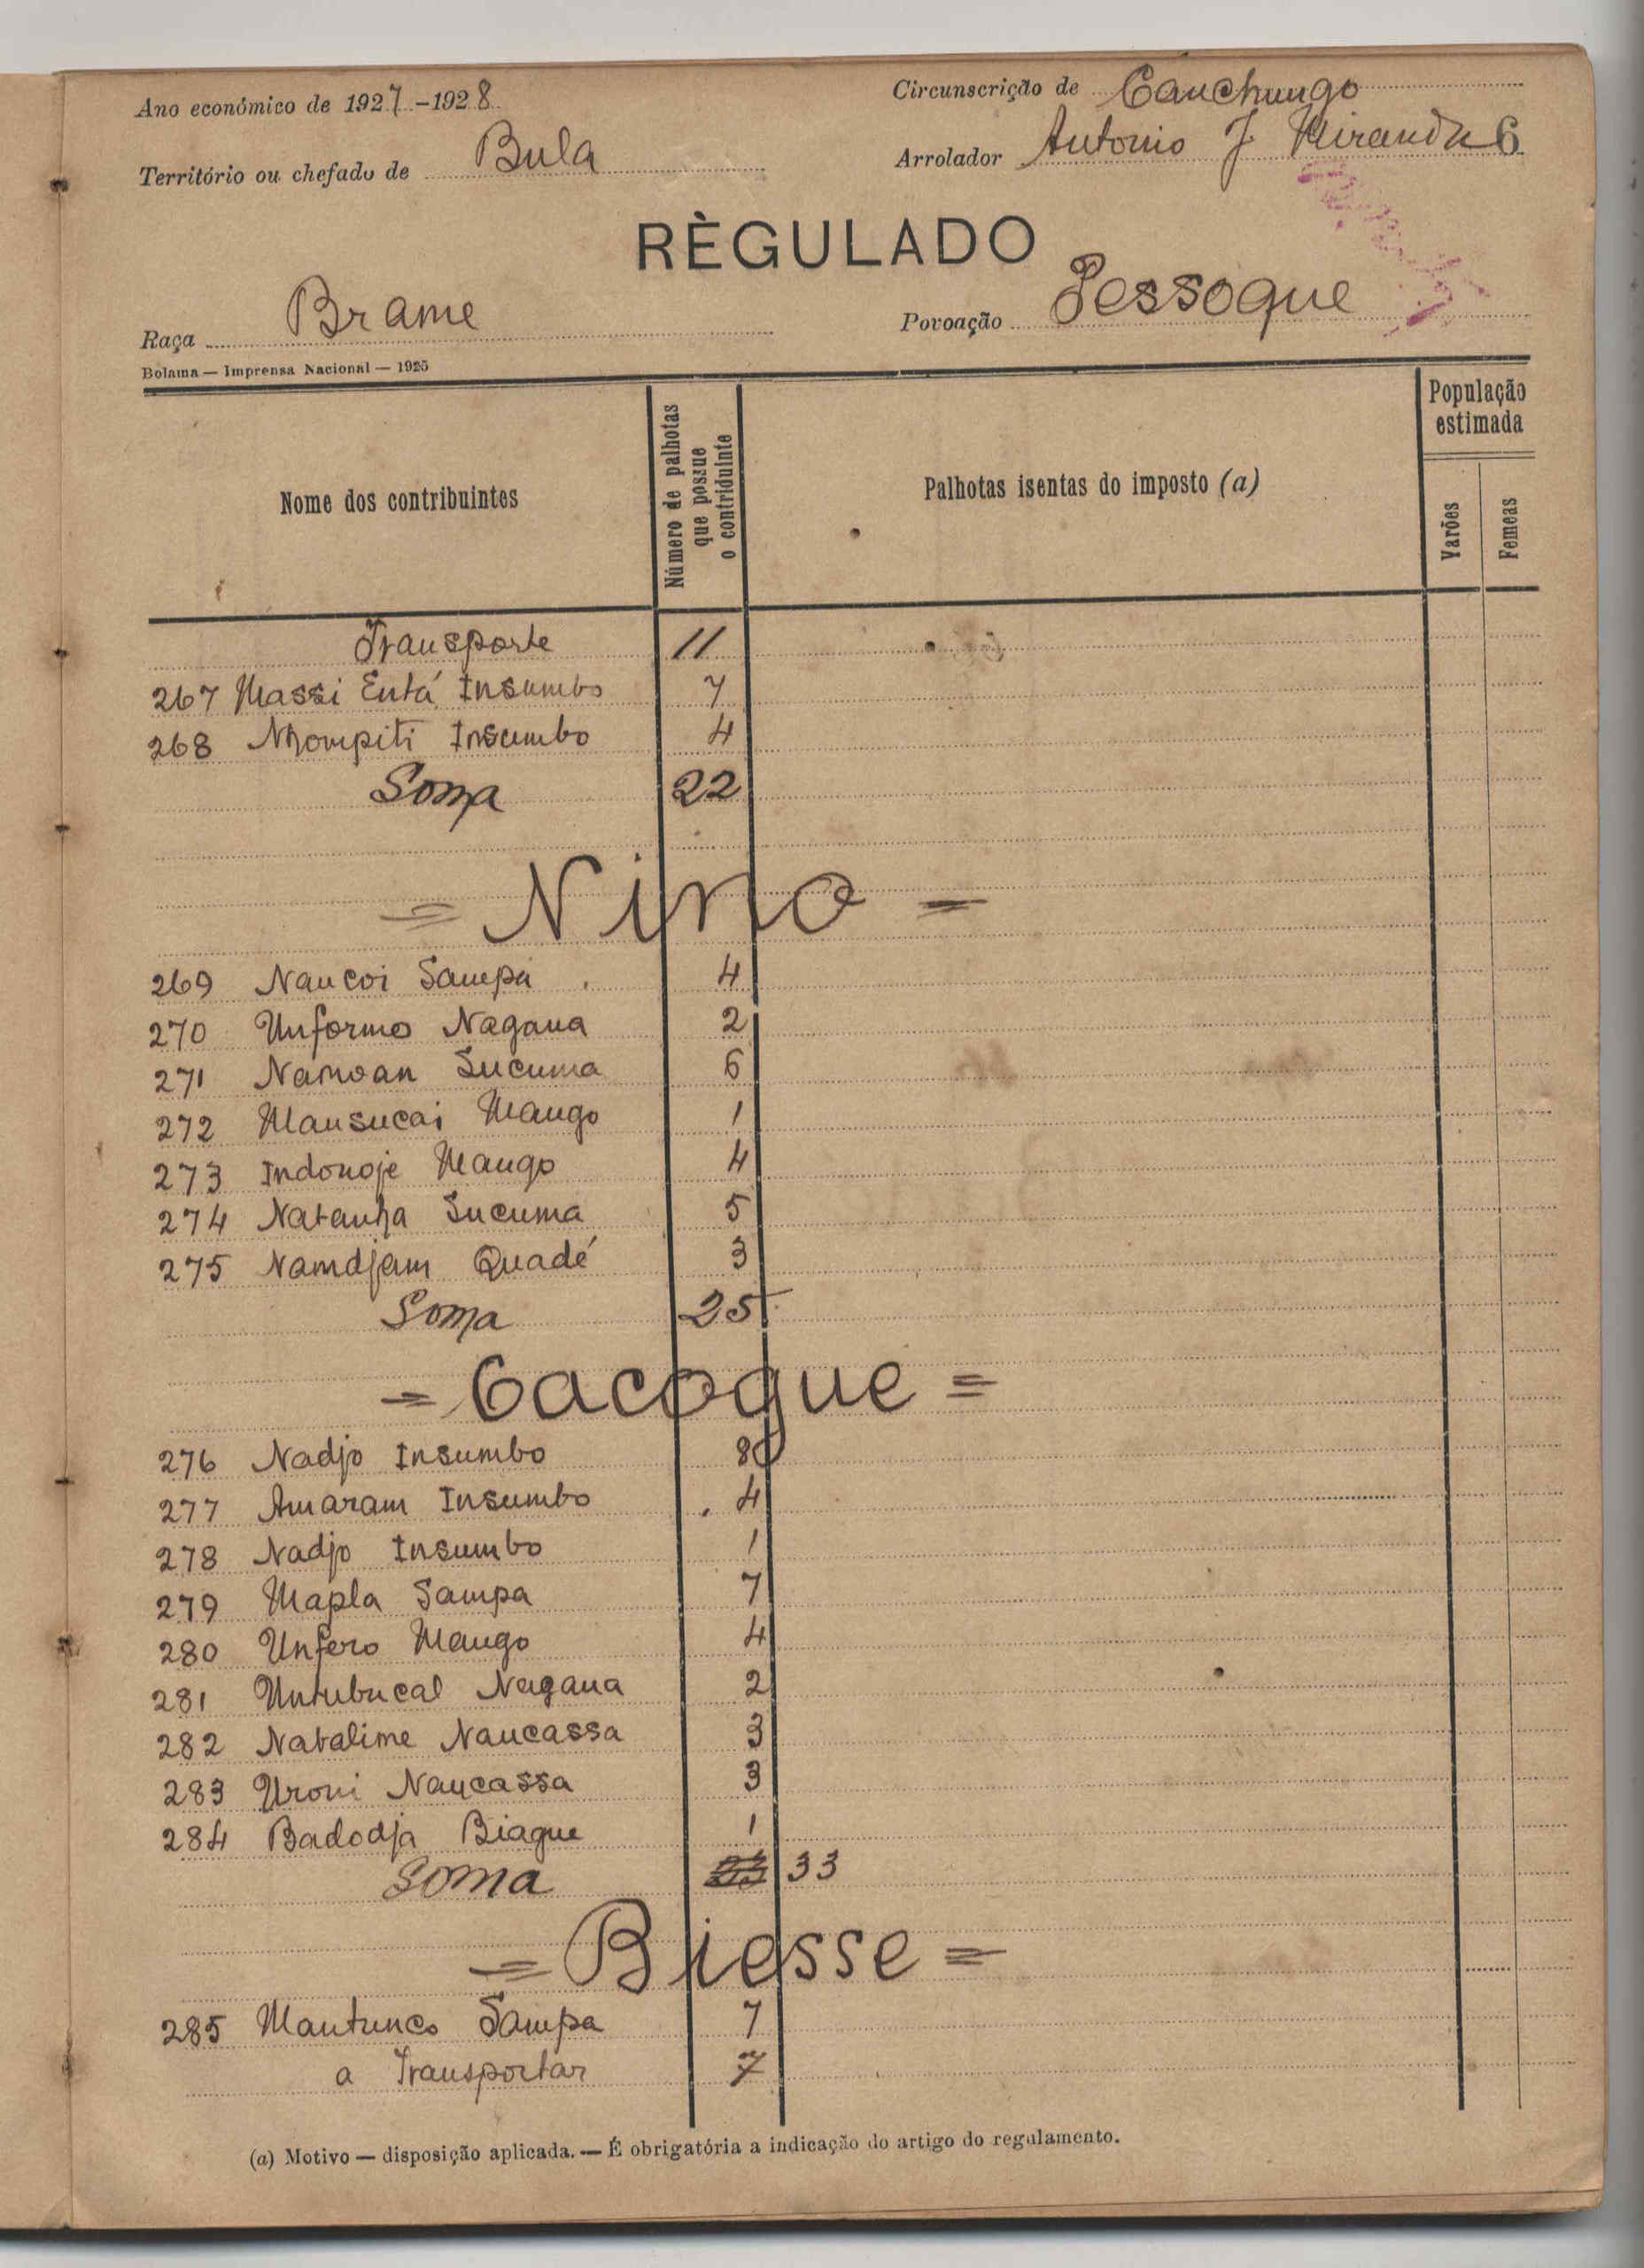 Ano económico de 1927-1928
Circunscrição de Canchungo
Território ou chefado de Bula
Arrolador Antonio J Miranda 6
RÈGULADO
Raça Brame
Povoação Pessoque
Bolama — Imprensa Nacional — 1925
Nome dos contribuintes
Número de palhotas que possue o contriduinte
Palhotas isentas do imposto (a)
População estimada
Varões
Femeas
Transporte 11
267 Massi Entá Insumbo 7
268 Nhompiti Insumbo 4
Soma 22
= Nino =
269 Nancoi Sampa 4
270 Unformo Nagana 2
271 Namoan Sucuma 6
272 Mansucai Mango 1
273 Indonoje Mango 4
274 Natanha Sucuma 5
275 Namdjam Quadé 3
Soma 25
= Cacogue =
276 Nadjo Insumbo 8
277 Amaram Insumbo 4
278 Nadjo Insumbo 1
279 Mapla Sampa 7
280 Unfero Mango 4
281 Untubucal Nagana 2
282 Natalime Naucassa 3
283 Uroni Naucassa 3
284 Badodja Biague 1
Soma 33
= Biesse =
285 Mantunco Sampa 7
a Transportar 7
(a) Motivo — disposição aplicada. — É obrigatória a indicação do artigo do regulamento.